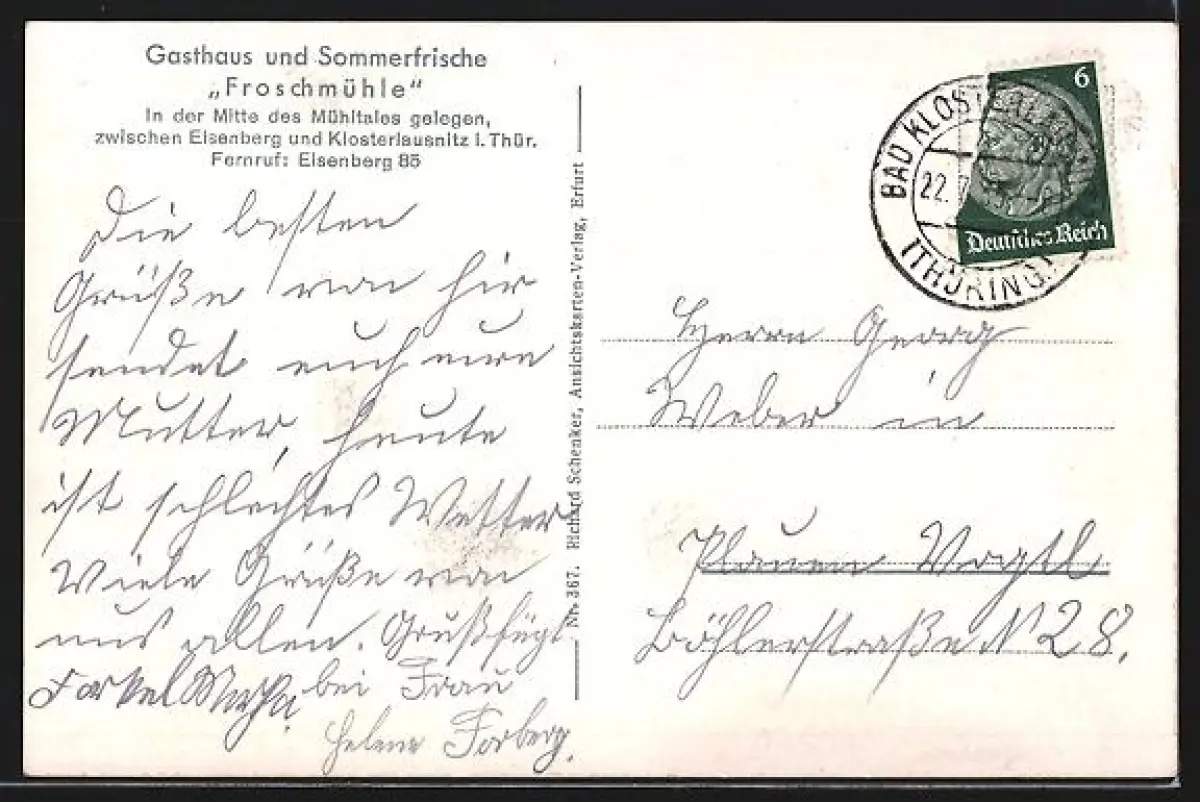 Gasthaus und Sommerfrische
„Froschmühle“
In der Mitte des Mühltales gelegen,
zwischen Eisenberg und Klosterlausnitz i. Thür.
Fernruf: Eisenberg 85
Die besten
Grüße von hir
sendet euch eure
Mutter, heute
ist schlechtes Wetter
Viele Grüße von
uns allen. Gruß fügt
bei Frau
Helene Forberg.
Nr. 367. Richard Schenker, Ansichtskarten-Verlag, Erfurt
6
Deutsches Reich
BAD KLOSTERLAUSNITZ
22.
(THÜRING.)
Herrn Georg
Weber in
Plauen Vogtl
Böhlerstraße N 28.